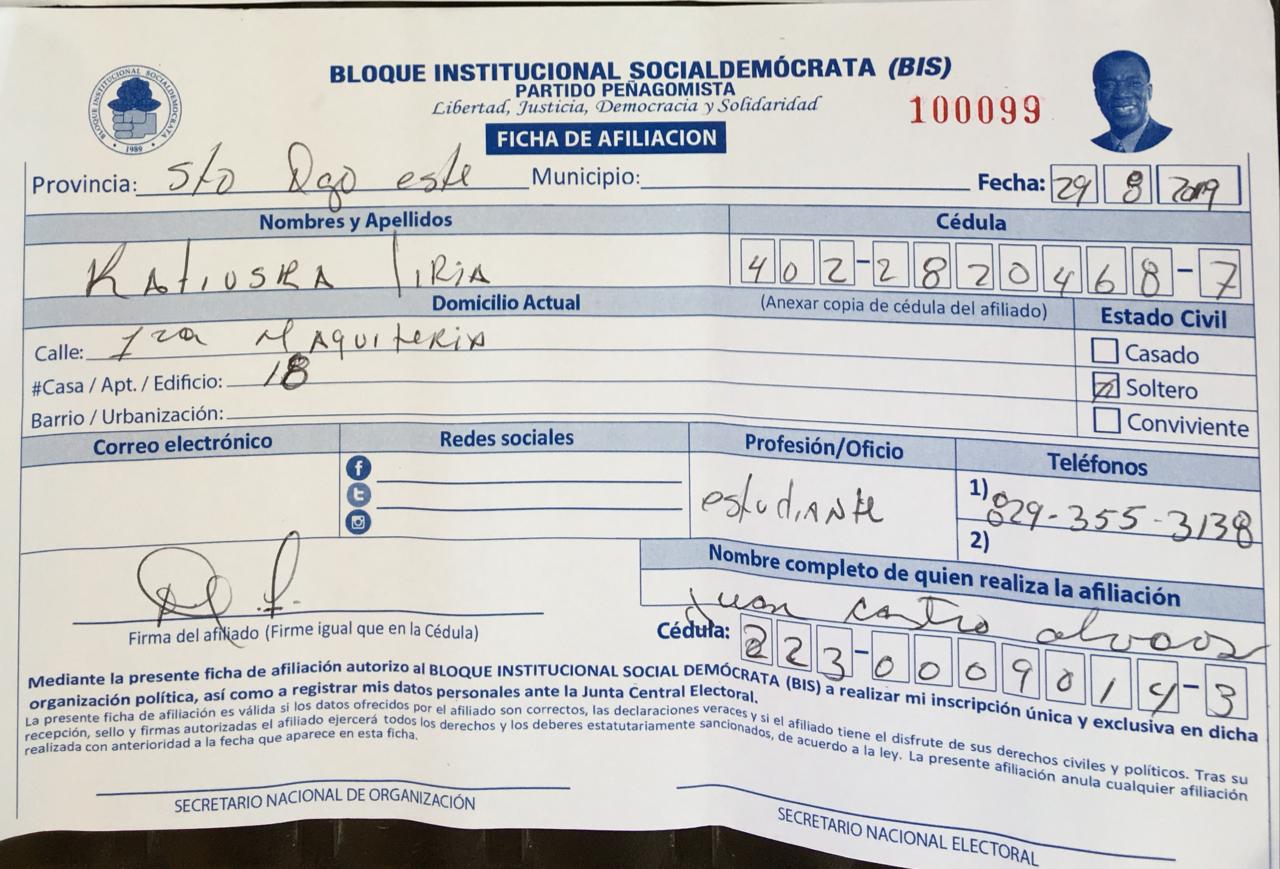 BLOQUE INSTITUCIONAL SOCIALDEMÓCRATA (BIS)
PARTIDO PEÑAGOMISTA
Libertad, Justicia, Democracia y Solidaridad
100099
BLOQUE INSTITUCIONAL SOCIALDEMOCRATA
1989
FICHA DE AFILIACION
Provincia: Sto Dgo este Municipio: Fecha: 29 8 2019
Nombres y Apellidos Cédula
KATIUSRA 402-2820468-7
Domicilio Actual (Anexar copia de cédula del afiliado) Estado Civil
Calle: 1ra MAQUITERIA
Casado
#Casa / Apt. / Edificio: 18
Soltero
Barrio / Urbanización:
Conviviente
Correo electrónico Redes sociales Profesión/Oficio Teléfonos
estudiANte
1) 829-355-3138
2)
Nombre completo de quien realiza la afiliación
Juan castro
Firma del afiliado (Firme igual que en la Cédula)
Cédula: 223-0009014-3
Mediante la presente ficha de afiliación autorizo al BLOQUE INSTITUCIONAL SOCIAL DEMÓCRATA (BIS) a realizar mi inscripción única y exclusiva en dicha
organización política, así como a registrar mis datos personales ante la Junta Central Electoral.
La presente ficha de afiliación es válida si los datos ofrecidos por el afiliado son correctos, las declaraciones veraces y si el afiliado tiene el disfrute de sus derechos civiles y políticos. Tras su
recepción, sello y firmas autorizadas el afiliado ejercerá todos los derechos y los deberes estatutariamente sancionados, de acuerdo a la ley. La presente afiliación anula cualquier afiliación
realizada con anterioridad a la fecha que aparece en esta ficha.
SECRETARIO NACIONAL DE ORGANIZACIÓN
SECRETARIO NACIONAL ELECTORAL